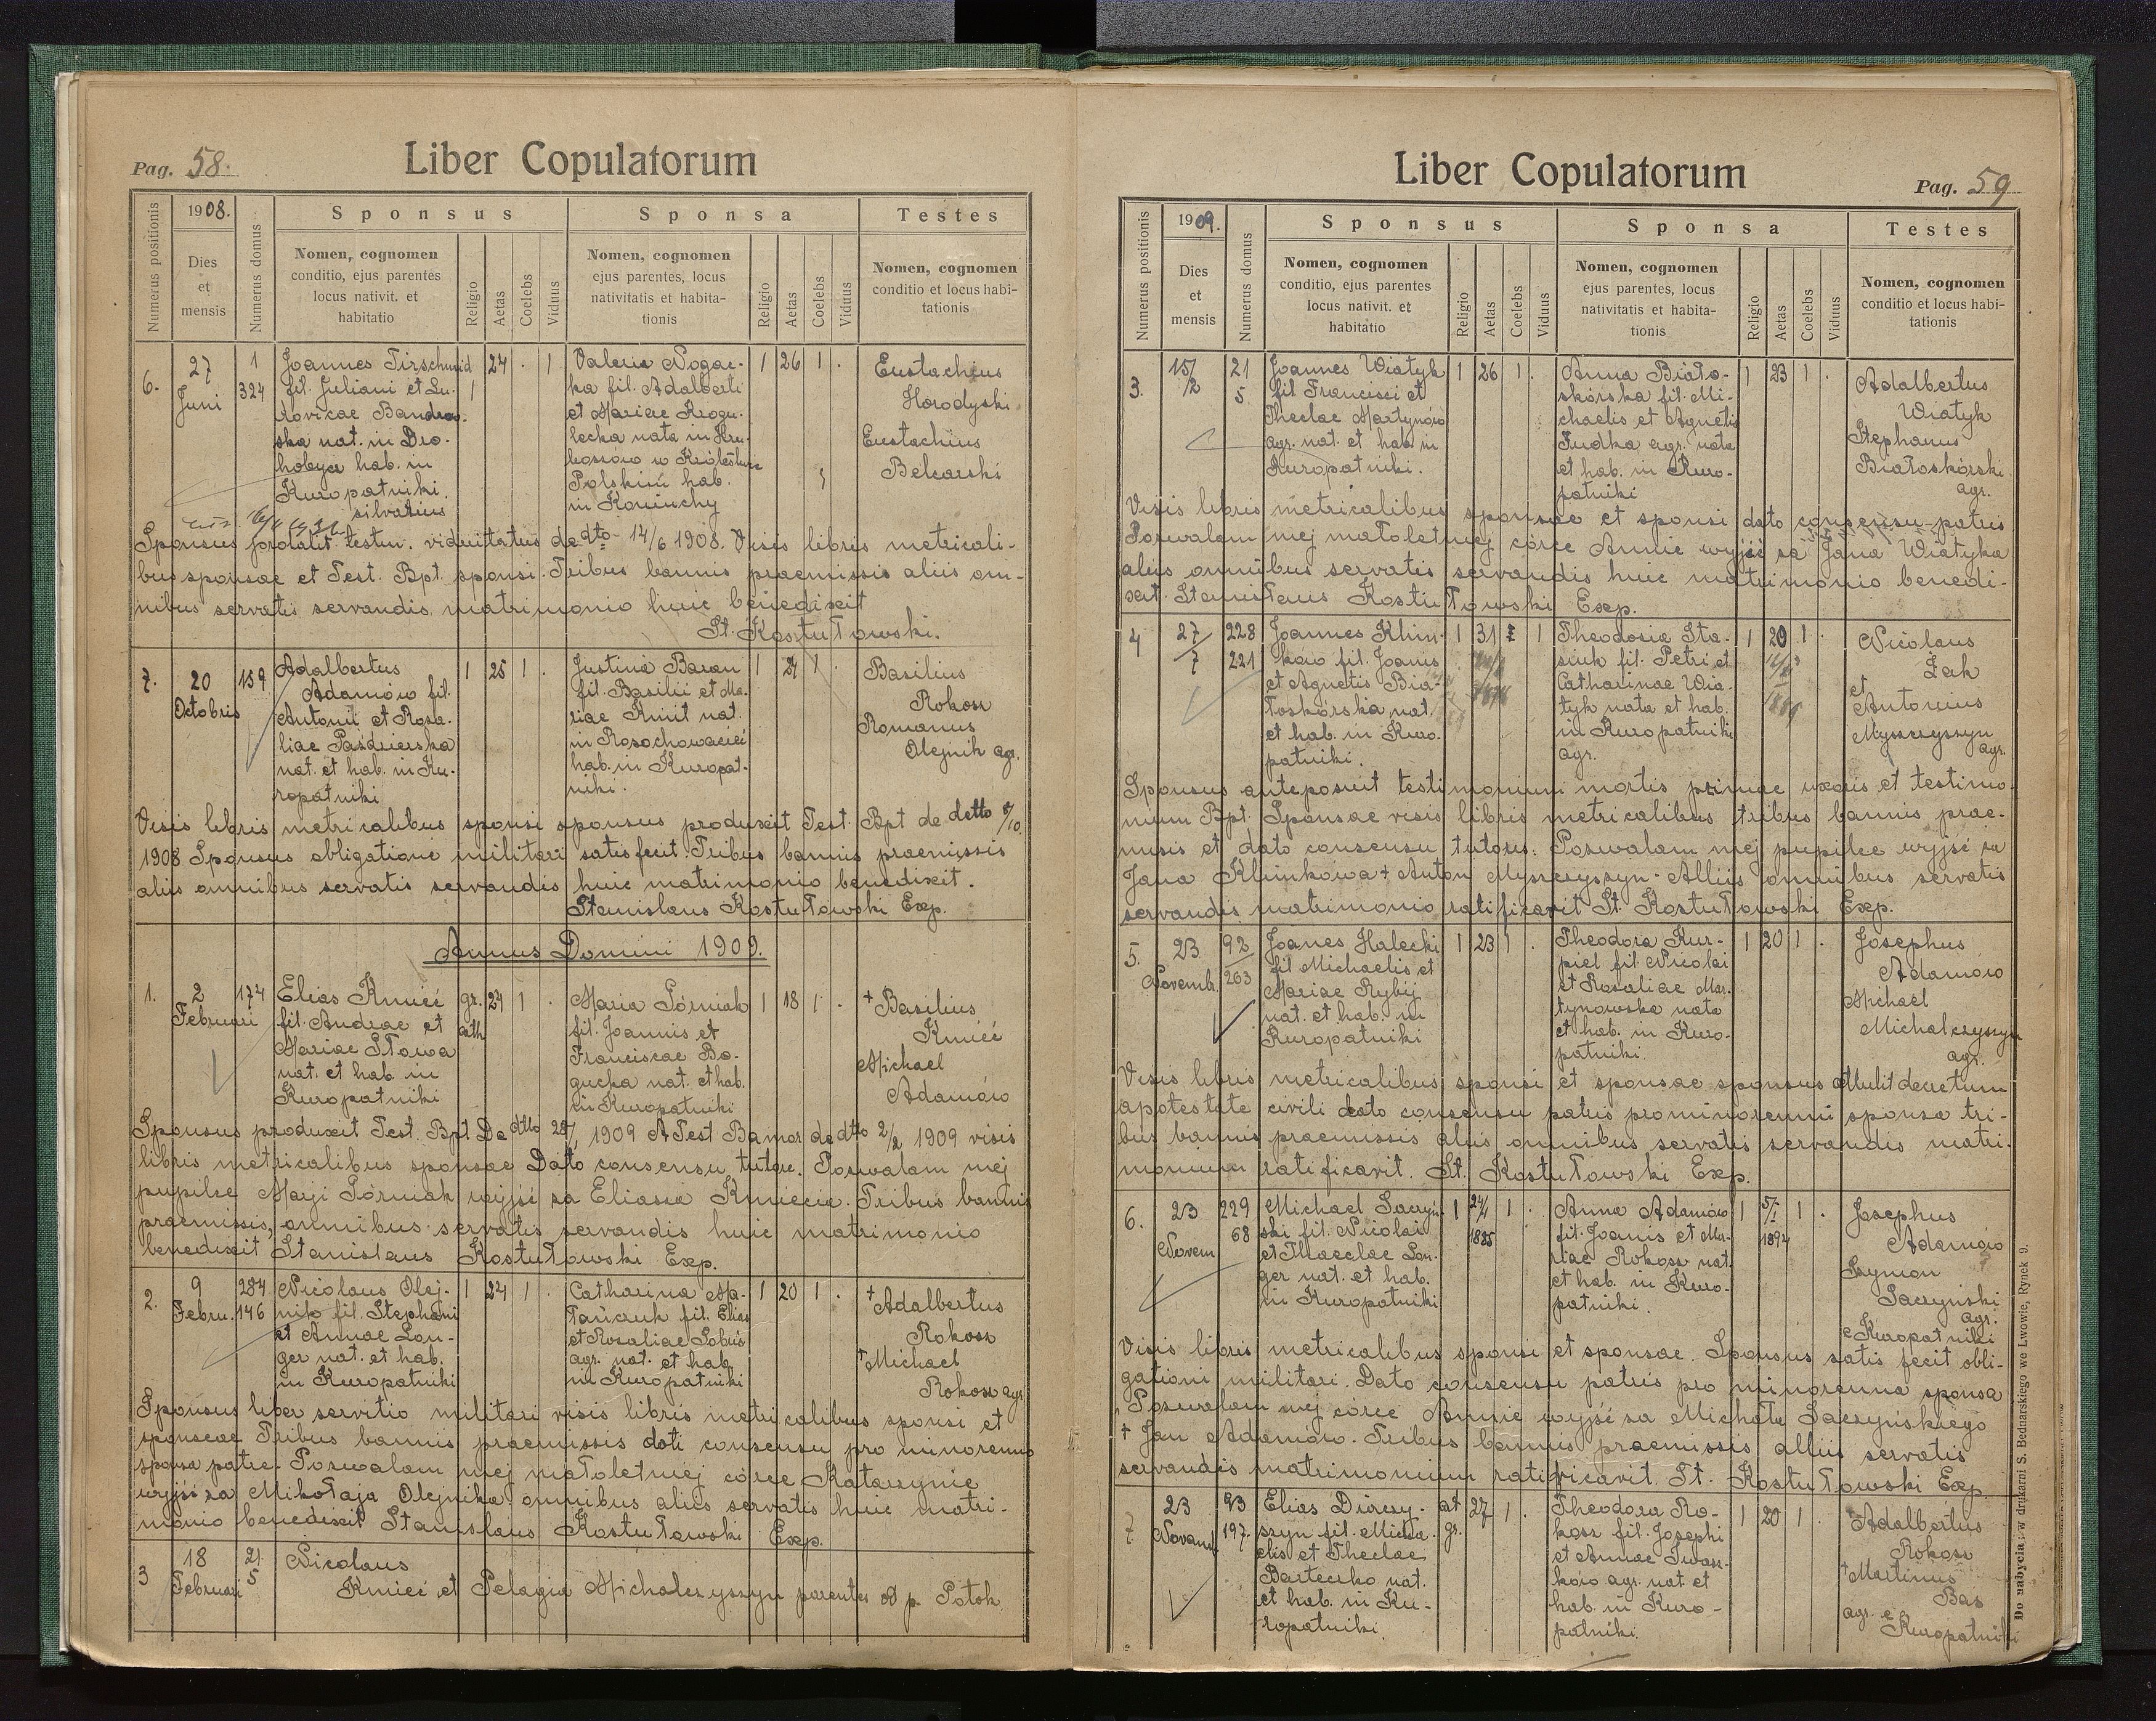 Pag. 58.
Liber Copulatorum
Numerus positionis
1908.
Dies
et
mensis
Numerus domus
Sponsus
Nomen, cognomen
conditio, ejus parentes
locus nativit. et
habitatio
Religio
Aetas
Coelebs
Viduus
Sponsa
Nomen, cognomen
ejus parentes, locus
nativitatis et habita-
tionis
Religio
Aetas
Coelebs
Viduus
Testes
Nomen, cognomen
conditio et locus habi-
tationis
6.
27
Juni
1
324
Joannes Tirschmid
fil. Juliani et Lu-
dovicae Bandrow-
ska nat. in Dro-
hobycz hab. in
Kuropatniki.
silvatius
1 24 . 1
Valeria Nogac-
ka fil. Adalberti
et Mariae Rogu-
lecka nata in
w Królestwie
Polskim hab.
in Koniuchy
1 26 1 .
Eustachius
Horodyski
Eustachius
Belcarski
Sponsus protulit testim. viduitatis de dto 14/6 1908. Visis libris metricali-
bus sponsae et Test. Bpt. sponsi. Tribus bannis praemissis aliis om-
nibus servatis servandis matrimonio huic benedixit
St. Kostutowski.
7.
20
Octobris
159
Adalbertus
Adamów fil.
Antonii et Rosa-
liae Paździerska
nat. et hab. in Ku-
ropatniki
1 25 1 .
Justina Baran
fil. Basilii et Ma-
riae Kmit nat.
in Rosochowaciec
hab. in Kuropat-
niki.
1 21 1 .
Basilius
Rokosz
Romanus
Olejnik agr.
Visis libris metricalibus sponsi sponsus produxit Test. Bpt de detto 8/10
1908 Sponsus obligatione militari satisfecit. Tribus bannis praemissis
aliis omnibus servatis servandis huic matrimonio benedixit.
Stanislaus Kostutowski Exp.
Annus Domini 1909.
1.
2
Februari
174
Elias Kmieć
fil. Andrae et
Mariae Stowa
nat. et hab. in
Kuropatniki
gr. cath 24 1 .
Maria Górniak
fil. Joannis et
Franciscae Bo-
gucka nat. et hab.
in Kuropatniki
1 18 1 .
+ Basilius
Kmieć
Michael
Adamów
Sponsus produxit Test. Bpt De dtto 28/1 1909 A Test Bannor de dtto 2/2 1909 visis
libris metricalibus sponsae Dato consensu tutore. Pozwalam mej
pupilce Maryi Górniak wyjść za Eliasza Kmiecia. Tribus bannis
praemissis, omnibus servatis servandis huic matrimonio
benedixit Stanislaus Kostutowski Exp.
2.
9
Febru.
284
146
Nicolaus Olej-
nik fil. Stephani
et Annae Lon-
ger nat. et hab.
in Kuropatniki
1 24 1 .
Catharina Ma-
tańczuk fil. Elias
et Rosaliae Sobuś
agr. nat. et hab.
in Kuropatniki
1 20 1 .
+ Adalbertus
Rokosz
+ Michael
Rokosz agr.
Sponsus liber servitio militari visis libris metricalibus sponsi et
sponsae Tribus bannis praemissis doti consensu pro minorenno
sponsa patre. Pozwalam mej małoletniej córce Katarzynie
wyjść za Mikołaja Olejnika omnibus aliis servatis huic matri-
monio benedixit Stanislaus Kostutowski Exp.
3
18
Februari
21
5
Nicolaus
Kmieć et Pelagia Michalczyszyn parentes od p. Potok
Liber Copulatorum
Pag. 59
Numerus positionis
1909.
Dies
et
mensis
Numerus domus
Sponsus
Nomen, cognomen
conditio, ejus parentes
locus nativit. et
habitatio
Religio
Aetas
Coelebs
Viduus
Sponsa
Nomen, cognomen
ejus parentes, locus
nativitatis et habita-
tionis
Religio
Aetas
Coelebs
Viduus
Testes
Nomen, cognomen
conditio et locus habi-
tationis
3.
15/2
21
5
Joannes Wiatyk
fil. Francisci et
Theclae Martynów
agr. nat. et hab. in
Kuropatniki.
1 26 1 .
Anna Biało-
skórska fil. Mi-
chaelis et Agnetis
Judka agr. nata
et hab. in Kuro-
patniki
1 23 1 .
Adalbertus
Wiatyk
Stephanus
Białoskórski
agr.
Visis libris metricalibus sponsae et sponsi dato consensu patris
Pozwalam mej małoletniej córce Annie wyjść za Jana Wiatyka
aliis omnibus servatis servandis huic matrimonio benedi-
xit. Stanislaus Kostutowski Exp.
4
27/7
228
221
Joannes Klim-
ków fil. Joanis
et Agnetis Bia-
łoskórska nat.
et hab. in Kuro-
patniki.
1 31 1
Theodosia Sta-
siuk fil. Petri et
Catharinae Wia-
tyk nata et hab.
in Kuropatniki
agr.
1 20 1 .
Nicolaus
Żak
et
Antonius
Myszczyszyn
agr.
Sponsus anteposuit testimonium mortis primae uxoris et testimo-
nium Bpt. Sponsae visis libris metricalibus tribus bannis prae-
misis et dato consensu tutoris: Pozwalam mej pupilce wyjść za
Jana Klimkowa + Anton Myszczyszyn - Alliis omnibus servatis
servandis matrimonio ratificavit St. Kostutowski Exp.
5.
23
Novemb.
92
263
Joanes Halecki
fil Michaelis et
Mariae Rybij
nat. et hab. in
Kuropatniki
1 23 1 .
Theodora Kur-
piel fil. Nicolai
et Rosaliae Mar-
tynowska nata
et hab. in Kuro-
patniki.
1 20 1 .
Josephus
Adamów
Michael
Michalczyszyn
agr.
Visis libris metricalibus sponsi et sponsae sponsus attulit decretum
apotestate civili dato consensu patris pro minorenni sponsa tri-
bus bannis praemissis aliis omnibus servatis servandis matri-
monium ratificavit. St. Kostutowski Exp.
6.
23
Novem
229
68
Michael Saczyń-
ski fil. Nicolai
et Thaeclae Lon-
ger nat. et hab.
in Kuropatniki
1 24/4 1885 1 .
Anna Adamów
fil. Joanis et Ma-
riae Rokosz nat.
et hab. in Kuro-
patniki.
1 5/1 1894 1 .
Josephus
Adamów
Szymon
Saczynski
agr.
e Kuropatniki
Visis libris metricalibus sponsi et sponsae. Sponsus satis fecit obli-
gationi militari. Dato consensu patris pro minorenna sponsa
„Pozwalam mej córce Annie wyjść za Michała Saczyńskiego
+ Jan Adamów. Tribus bannis praemissis alliis servatis
servandis matrimonium ratificavit. St. Kostutowski Exp.
7
23
Novemb
93
197
Elias Diorczy-
szyn fil. Micha-
elis et Theclae
Barteczko nat.
et hab. in Ku-
ropatniki.
gr. 27 1 .
Theodora Ro-
kosz fil. Josephi
et Annae Iwasz-
ków agr. nat. et
hab. in Kuro-
patniki.
1 20 1 .
+ Adalbertus
Rokosz
+ Martinus
Bas
agr. e
Kuropatniki
Do nabycia w drukarni S. Bednarskiego we Lwowie, Rynek 9.